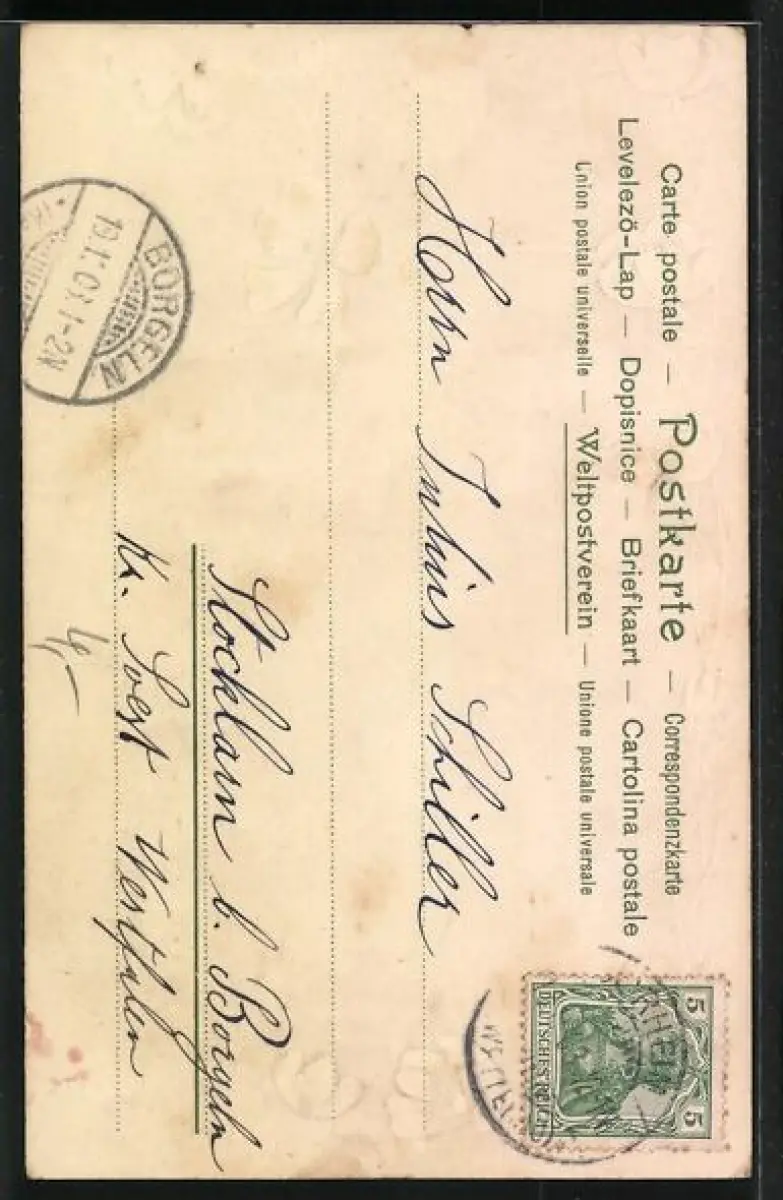 Carte postale — Postkarte — Correspondenzkarte
Levelezö-Lap — Dopisnice — Briefkaart — Cartolina postale
Union postale universelle — Weltpostverein — Unione postale universale
5 5
DEUTSCHES REICH
Herrn Julius Schiller
Stocklarn b. Borgeln
Kr. Soest Westfalen
4,-
BORGELN
1-2N